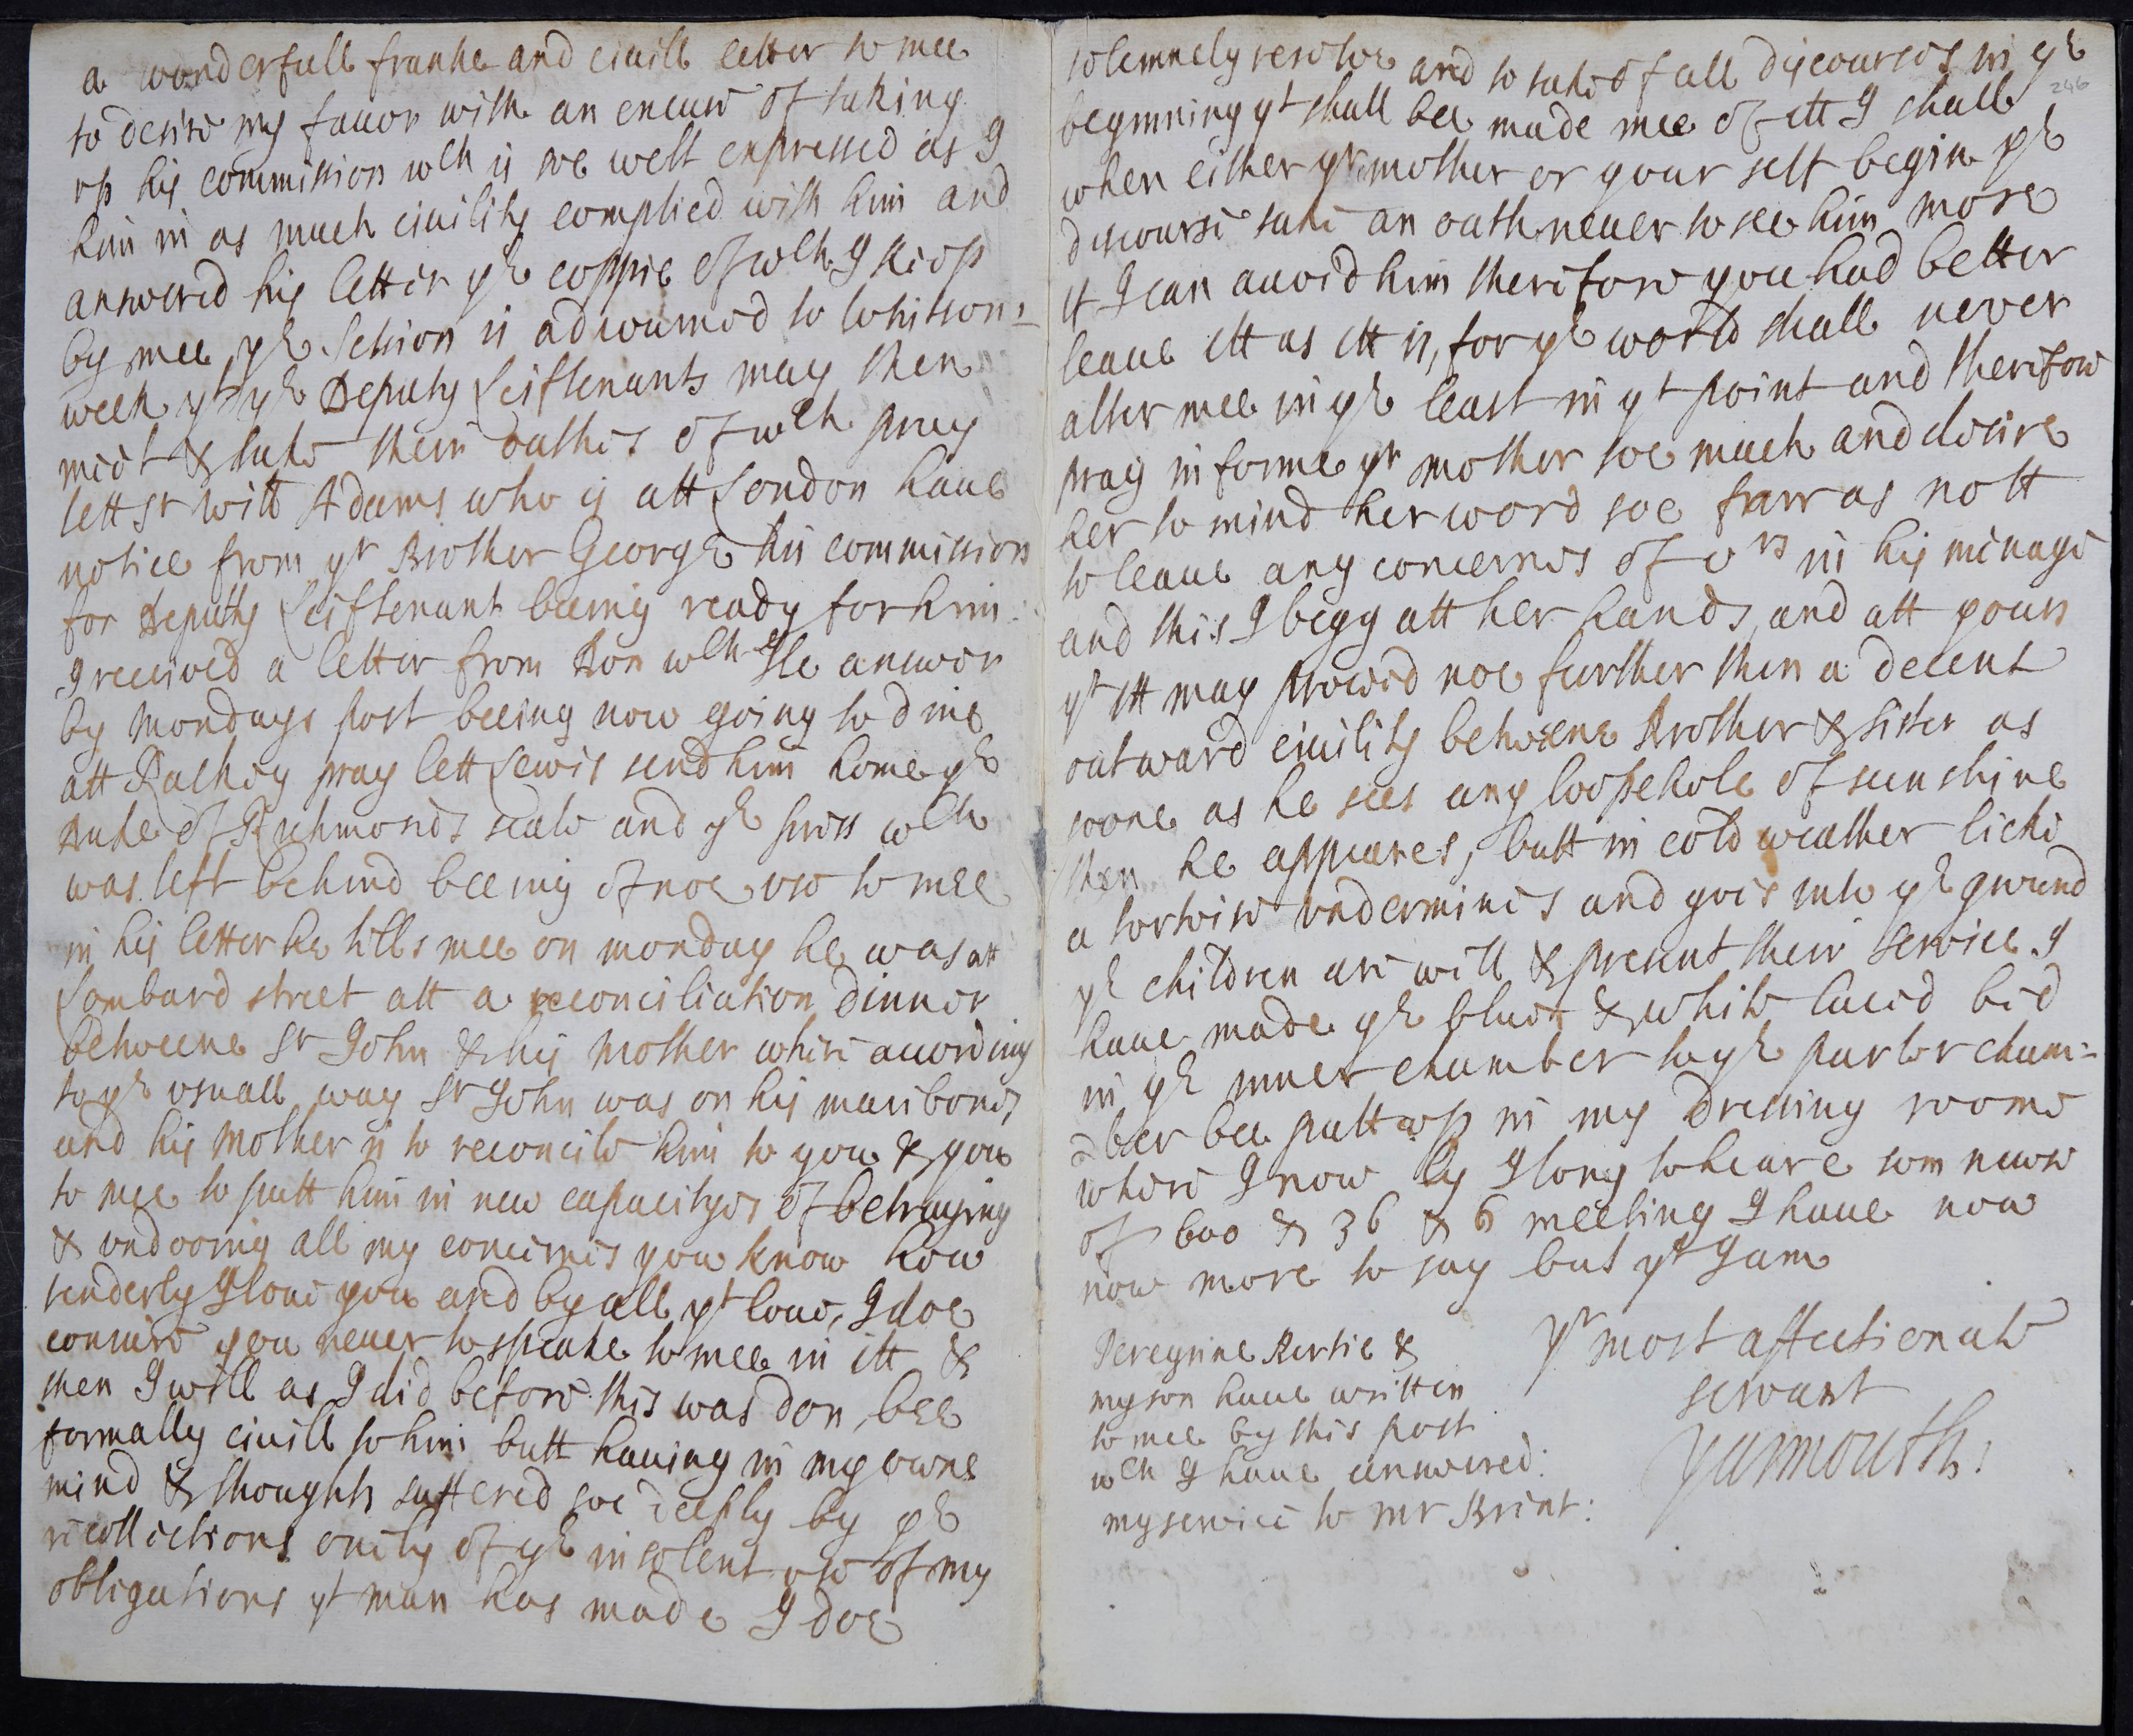 a wonderfull franke and civill letter to mee
to desire my favor with an excuse of taking
vp his commission wch is soe well expressed as I
him in as much civility complied with him and
answered his letter ye coppie of wch I keep
by mee, ye Session is adiourned to Whitson=
week yt ye Deputy Leiftenants may then
meet & take their oathes of wch pray
lett Sr Will Adams who is att London have
notice from yr Brother George his commission
for Deputy Leiftenant beeing ready for him:
I received a letter from Don wch Ile answer
by mondays post beeing now going to dine
att Rachey pray lett Lewis send him home ye
Duke of Richmonds seale and ye press wch
was left behind beeing of noe vse to mee
in his letter he tells mee on monday he was att
Lombard street att a reconciliation dinner
betweene Sr John & his mother where according
to ye vsuall way Sr John was on his maribones
and his mother is to reconcile him to you & you
to mee to putt him in new capacityes of betraying
& vndooing all my concernes you know how
tenderly I love you and by all yt love, I doe
coniure you never to speake to mee in itt &
then I will as I did before this was don, bee
formally civill to him butt having in my owne
mind & thoughts suffered soe deeply by ye
recollections onely of ye insolent vse of my
obligations yt man has made I doe
solemnely resolve and to take of all discourses in ye
246
beginning yt shall bee made mee of itt I shall
when either yr mother or your self begin ye
discourse take an oath never to see him more
if I can avoid him therefore you had better
leave itt as itt is, for ye world shall never
alter mee in ye least in yt point and therefore
pray informe yr mother soe much and desire
her to mind her word soe farr as nott
to leave any concernes of ors in his menage
and this I begg att her hands, and att yours
yt itt may proceed noe further then a decent
outward civility betweene Brother & sister as
soone as he sees any loopehole of sunshine
then he appeares, butt in cold weather like
a tortoise vndermines and goes into ye ground
ye children are well & present their service I
have made ye blue & white laced bed
in ye inner chamber to ye parlor cham=
=ber bee putt vp in my dressing roome
where I now ly I long to heare som newse
of 600 & 36 & 6 meeting I have now
noe more to say but yt I am
yr most affectionate
servant
Yarmouth:
Peregrine Bertie &
my son have written
to mee by this post
wch I have answered:
my service to Mr Brent: